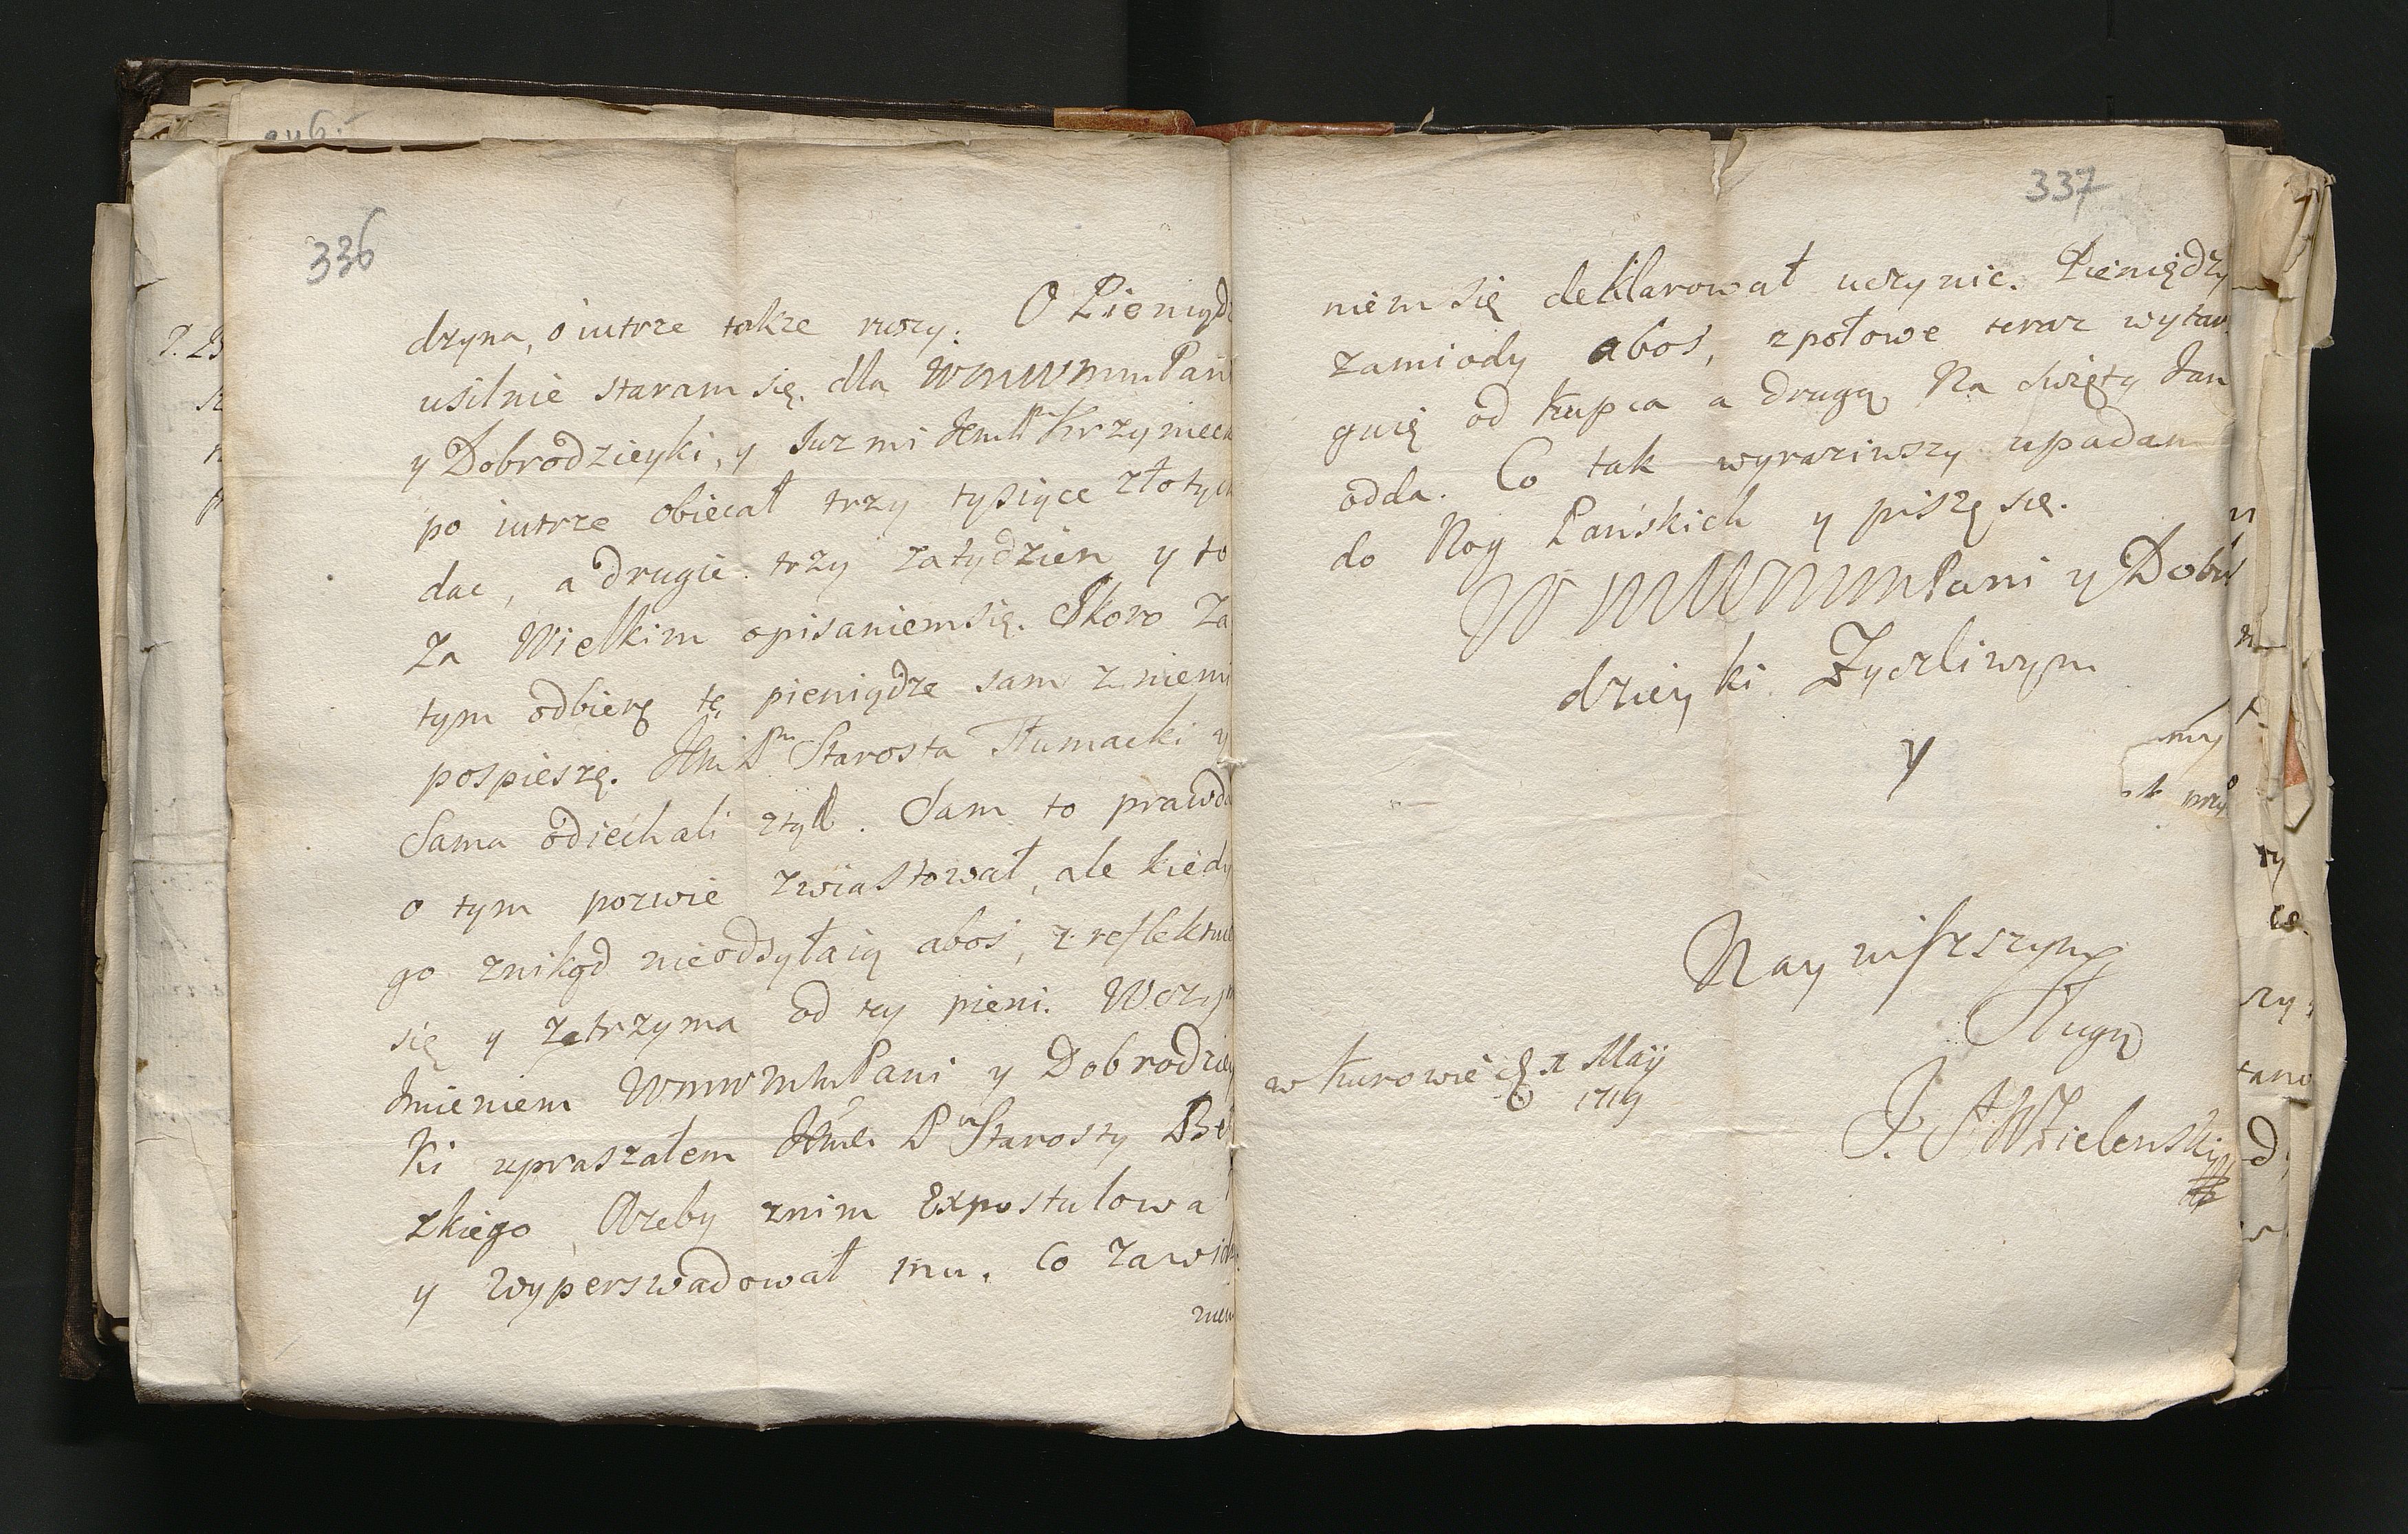 336
dzyna, o iutrze takze ruszy. O Pieniądz
usilnie staram się. dla WMWMMPani
y Dobrodzieyki, y Iuz mi JemP Krzynieck
po iutrze obiecał trzy tysiące złotych
dac, a drugie trzy zatydzien y to
Za Wielkim opisaniem się. Skoro Za
tym odbierę tę pieniądze sam z niemi
pospieszę. JmP Starosta Tłumacki y
Sama odiechali ztąd. Sam to prawda
o tym pozwie zwiastował, ale kiedy
go znikąd nieodsyłaią abos, z reflektuie
się y zatrzyma od tey pieni. W czym
Imieniem WMWMMPani y Dobrodziey
ki upraszałem Jme P Starosty Beł
zkiego, Azeby znim Expostulowa
y wyperswadował mu. Co Zawid
niem
337
niem się deklarował uczynic. Pieniądzy
zamiody abos, zpołowe teraz wytar
guię od kupca a drugą Na Swięty Jan
odda. Co tak wyraziwszy upadam
do Nog Pańskich y piszę się.
WMWMMPani y Dobro
dzieyki Zyczliwym
y
Nayniszszym
Sługą
w Kurowie d. Maÿ
1719
J. A. Wzielenski